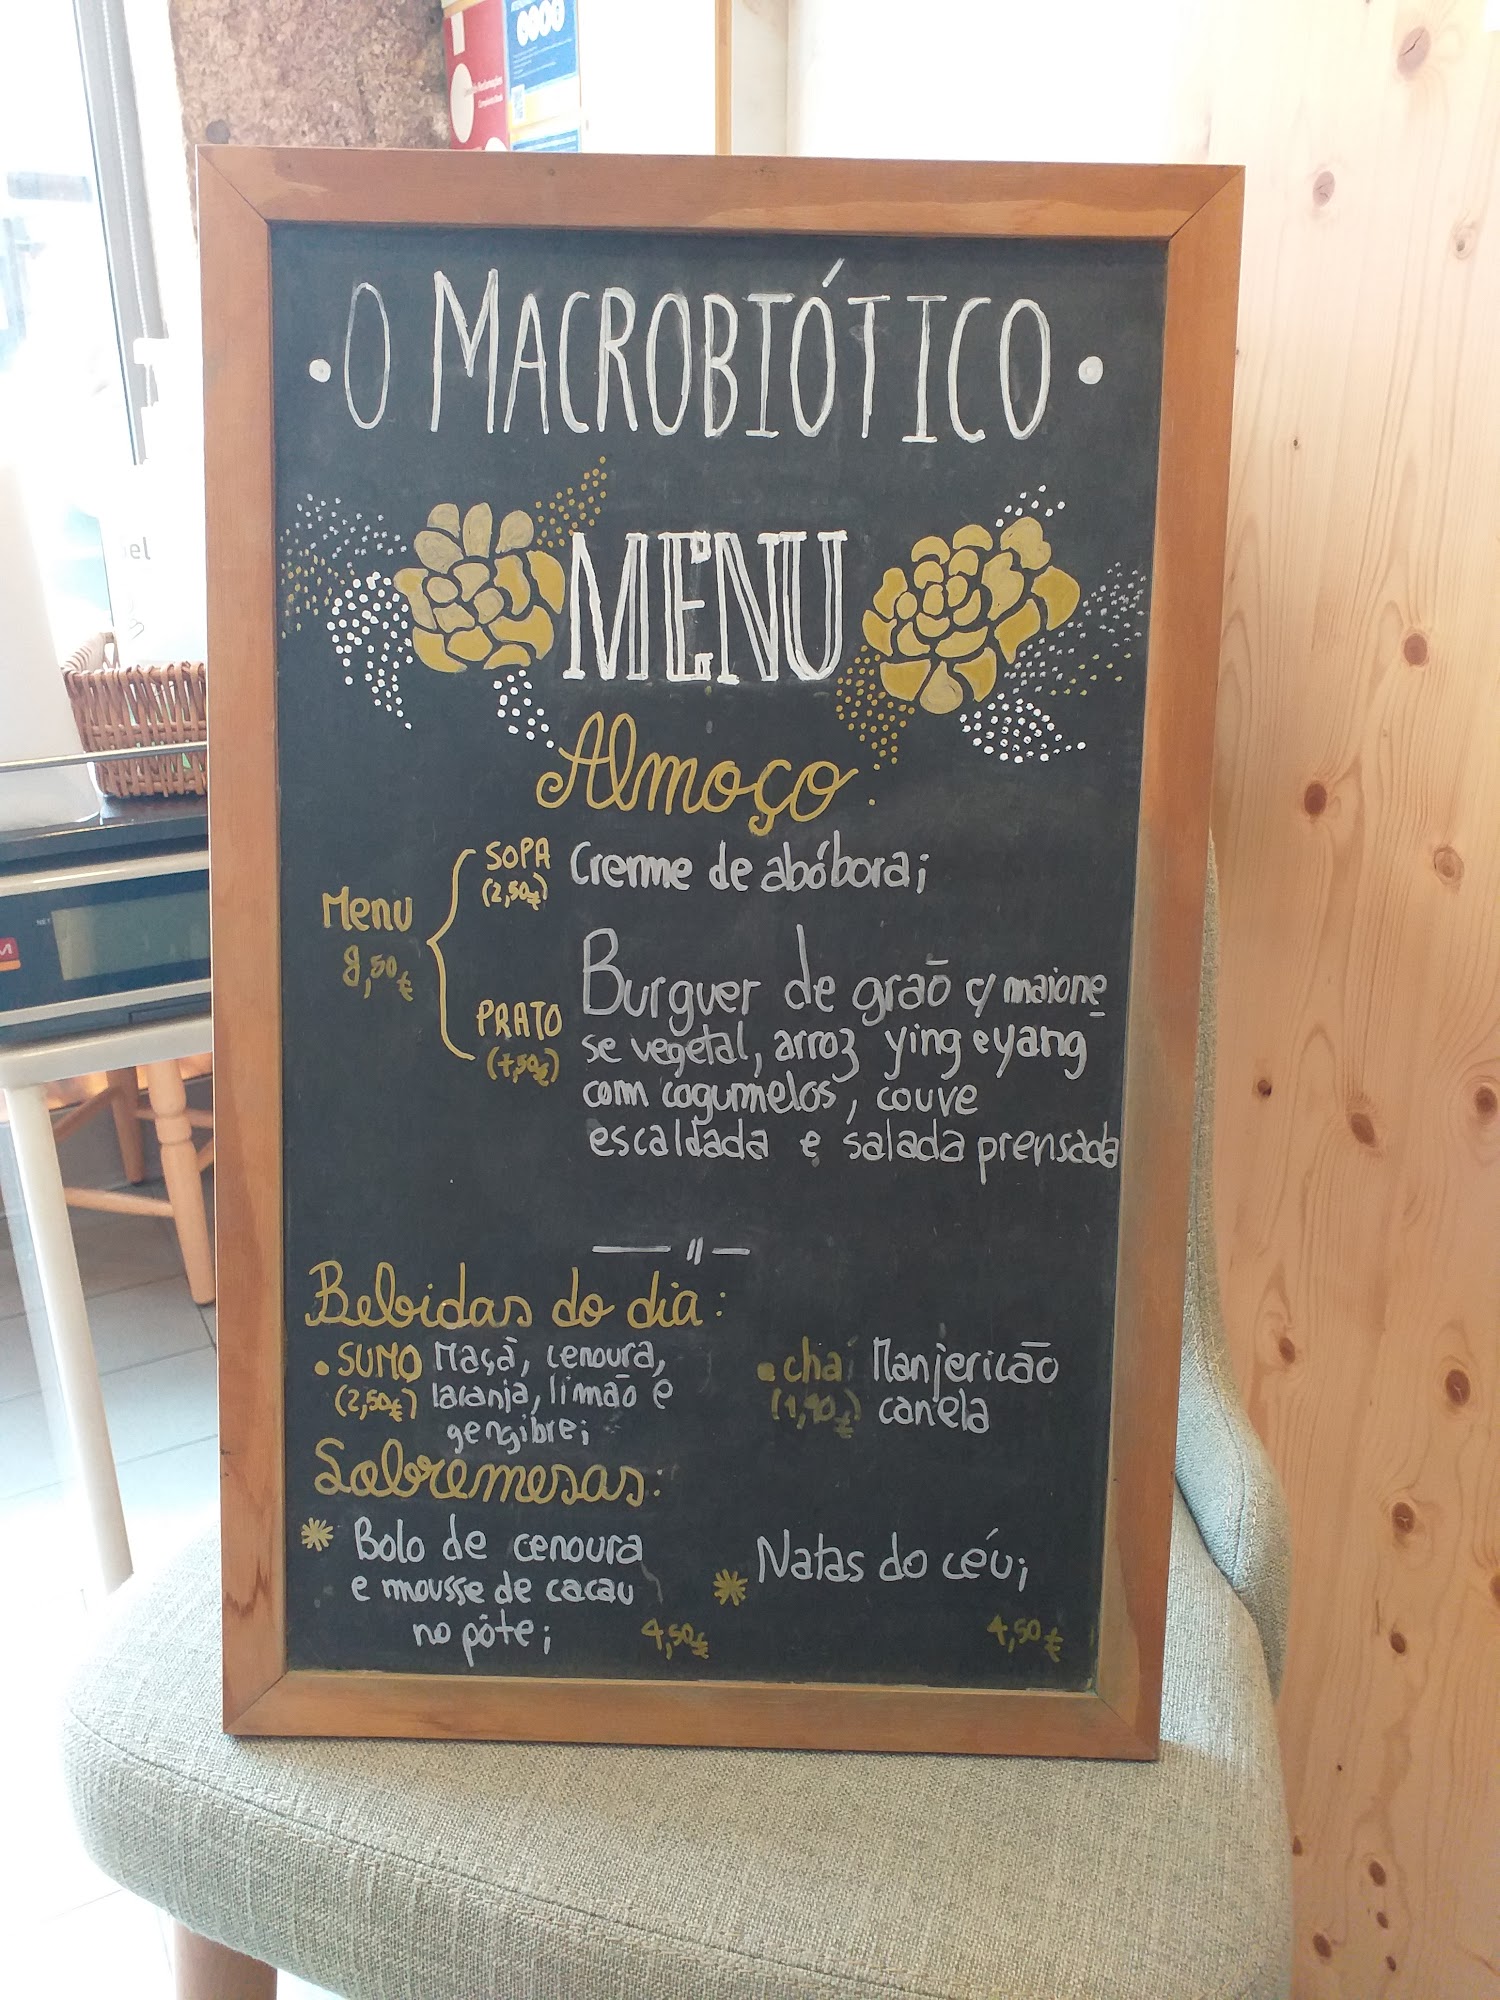 • O MACROBIÓTICO •
MENU
Almoço:
Menu
8,50€
SOPA
(2,50€)
Creme de abóbora;
PRATO
(7,50€)
Burguer de grão c/ maione
se vegetal, arroz ying e yang
com cogumelos, couve
escaldada e salada prensada
Bebidas do dia:
• SUMO
(2,50€)
Maçã, cenoura,
laranja, limão e
gengibre;
• chá
(1,90€)
Manjericão
canela
Sobremesas:
Bolo de cenoura
e mousse de cacau
no pôte;
4,50€
Natas do céu;
4,50€